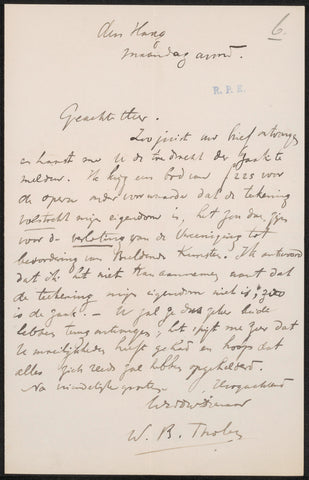 den Haag
6.
maandag avond.
R.P.K.
Geachte Heer.
Zoo juist uw brief ontvangen
en haast me U de toedracht der zaak te
melden. Ik krijg een bod van ƒ 225 voor
de opera onder voorwaarde dat de teekening
volstrekt mijn eigendom is, het zou dan zijn
voor de verloting van de Vereeniging tot
bevordering van Beeldende Kunsten. Ik antwoord
dat ik het niet kan aannemen want dat
de teekening mijn eigendom niet is, zoo
is de zaak. — U zal geduld
hebben terug ontvangen; het spijt me zeer dat
U moeilijkheden heeft gehad en hoop dat
alles zich reeds zal hebben opgehelderd.
Na vriendelijke groeten, Hoogachtend
Uw dw dienaar
W. B. Tholen